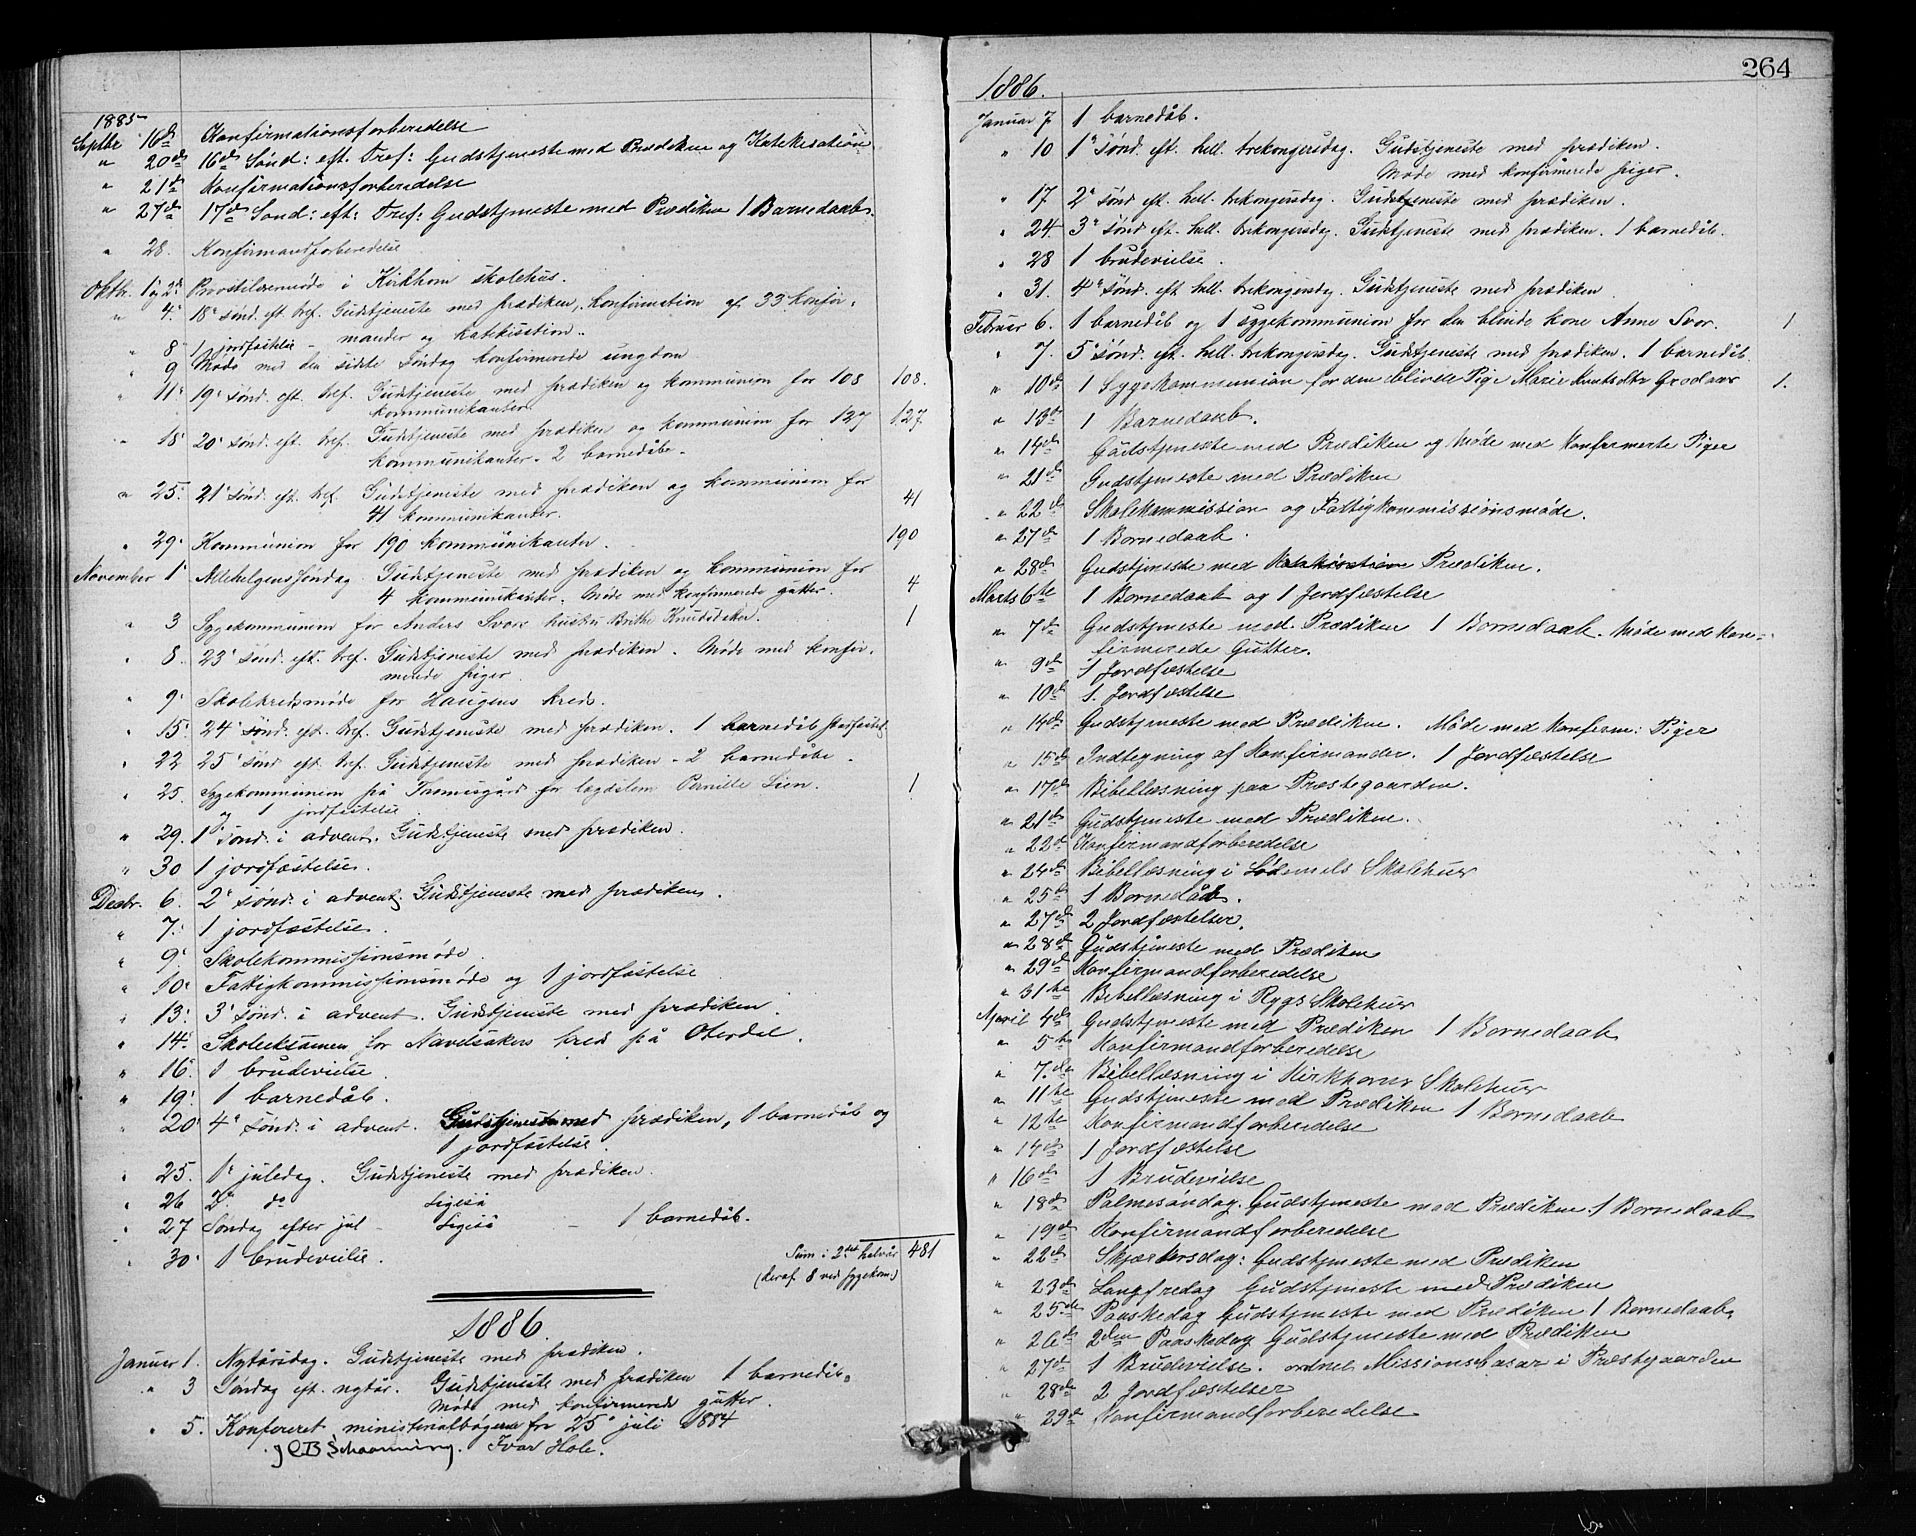 1885
Septbr 16de Konfirmationsforberedelse
" 20de 16de Sønd: eft. Tref: Gudstjeneste med Prædiken og Katekisation
" 21de Konfirmationsforberedelse
" 27de 17de Sønd: eft: Tref: Gudstjeneste med Prædiken 1 Barnedaab.
" 28. Konfirmandforberedelse
Oktbr. 1 og 2. Provstilærermøde i Kirkhorn skolehus.
" 4. 18. sønd. eft. tref. Gudstjeneste med prædiken, konfirmation af 33 konfir-
mander og katekisation.
" 8 1 jordfæstelse
" 9 Møde med den sidste søndag konfirmerede ungdom
" 11. 19. sønd. eft. tref. Gudstjeneste med prædiken og kommunion for 108 108.
kommunikanter.
" 18. 20. sønd. eft. tref. Gudstjeneste med prædiken og kommunion for 127 127.
kommunikanter. 2 barnedåbe.
" 25. 21. sønd. eft. tref. Gudstjeneste med prædiken og kommunion for
41 kommunikanter. 41
" 29. Kommunion for 190 kommunikanter. 190
November 1. Allehelgenssøndag. Gudstjeneste med prædiken og kommunion for
4 kommunikanter. Møde med konfirmerede gutter. 4
" 3 Sygekommunion for Anders Svors hustru Brithe Knudsdatter. 1
" 8. 23. sønd. eft. tref. Gudstjeneste med prædiken. Møde med konfir-
merede piger.
" 9. Skolekredsmøde for Haugens kreds.
" 15. 24. sønd. eft. tref. Gudstjeneste med prædiken. 1 barnedåb 1 jordfæstel.
" 22 25. sønd. eft. tref. Gudstjeneste med prædiken - 2 barnedåbe.
" 25. Sygekommunion på Tomasgård for lægdslem Pernille Lien. 1
og 1 jordfæstelse
" 29. 1. sønd. i advent. Gudstjeneste med prædiken.
" 30 1 jordfæstelse.
Decbr. 6. 2. sønd. i advent. Gudstjeneste med prædiken.
" 7. 1 jordfæstelse.
" 9. Skolekommissionsmøde.
" 10. Fattigkommissionsmøde og 1 jordfæstelse
" 13. 3. sønd. i advent. Gudstjeneste med prædiken.
" 14. Skoleeksamen for Navelsakers kreds på Oterdal.
" 16. 1 brudevielse.
" 19. 1 barnedåb.
" 20. 4. sønd. i advent. Gudstjeneste med prædiken, 1 barnedåb og
1 jordfæstelse.
" 25. 1. juledag. Gudstjeneste med prædiken.
" 26 2. do Ligeså
" 27 Søndag efter jul - Ligeså - 1 barnedåb.
" 30. 1 brudevielse. Sum i 2det halvår 481
(deraf 8 ved sygekom.)
1886.
Januar 1. Nytårsdag. Gudstjeneste med prædiken.
" 3 Søndag eft. nytår. Gudstjeneste med prædiken 1 barnedåb.
Møde med konfirmerede gutter.
" 5. Konfereret ministerialbøgerne fra 25. juli 1884
J C B Schaanning. Ivar Hole.
264
1886.
Januar 7 1 barnedåb.
" 10 1. sønd. eft. hell. trekongersdag. Gudstjeneste med prædiken.
Møde med konfirmerede piger.
" 17 2. sønd. eft. hell. trekongersdag. Gudstjeneste med prædiken.
" 24. 3. sønd. eft. hell. trekongersdag. Gudstjeneste med prædiken. 1 barnedåb.
" 28 1 brudevielse.
" 31. 4. sønd. eft. hell. trekongersdag. Gudstjeneste med prædiken
Februar 6. 1 barnedåb og 1 sygekommunion for den blinde kone Anne Svor. 1
" 7. 5. sønd. eft. hell. trekongersdag. Gudstjeneste med prædiken. 1 barnedåb.
" 10de 1 Sygekommunion for den blinde Pige Marie Knutsdtr Grodaas 1.
" 13de 1 Barnedaab.
" 14de Gudstjeneste med Prædiken og Møde med Konfirmerte Piger
" 21de Gudstjeneste med Prædiken
" 22de Skolekommission og Fattigkommissionsmøde.
" 27de 1 Barnedaab.
" 28de Gudstjeneste med Prædiken.
Marts 6te 1 Barnedaab og 1 Jordfæstelse
" 7de Gudstjeneste med Prædiken 1 Barnedaab. Møde med Kon-
firmerede Gutter.
" 9de 1 Jordfæstelse
" 10de 1 Jordfæstelse
" 14de Gudstjeneste med Prædiken. Møde med Konfirm: Piger
" 15de Indtegning af Konfirmander. 1 Jordfæstelse
" 17de Bibellæsning paa Præstegaarden.
" 21de Gudstjeneste med Prædiken.
" 22de Konfirmandforberedelse
" 24de Bibellæsning i Lødemels Skolehus
" 25de 1 Barnedåb.
" 27de 2 Jordfæstelser.
" 28de Gudstjeneste med Prædiken
" 29de Konfirmandforberedelse
" 31te Bibellæsning i Rygs Skolehus
April 4de Gudstjeneste med Prædiken 1 Barnedaab
" 5te Konfirmandforberedelse
" 7de Bibellæsning i Kirkhorns Skolehus
" 11te Gudstjeneste med Prædiken 1 Barnedaab
" 12te Konfirmandforberedelse
" 14de 1 Jordfæstelse
" 16de 1 Brudevielse
" 18de Palmesøndag. Gudstjeneste med Prædiken. 1 Barnedaab
" 19de Konfirmandforberedelse
" 22de Skjærtorsdag: Gudstjeneste med Prædiken
" 23de Langfredag Gudstjeneste med Prædiken
" 25de Paaskedag Gudstjeneste med Prædiken 1 Barnedaab.
" 26de 2den Paaskedag Gudstjeneste med Prædiken
" 27de 1 Brudevielse. ordnet Missionsbasar i Præstegaarden
" 28de 2 Jordfæstelser
" 29de Konfirmandforberedelse